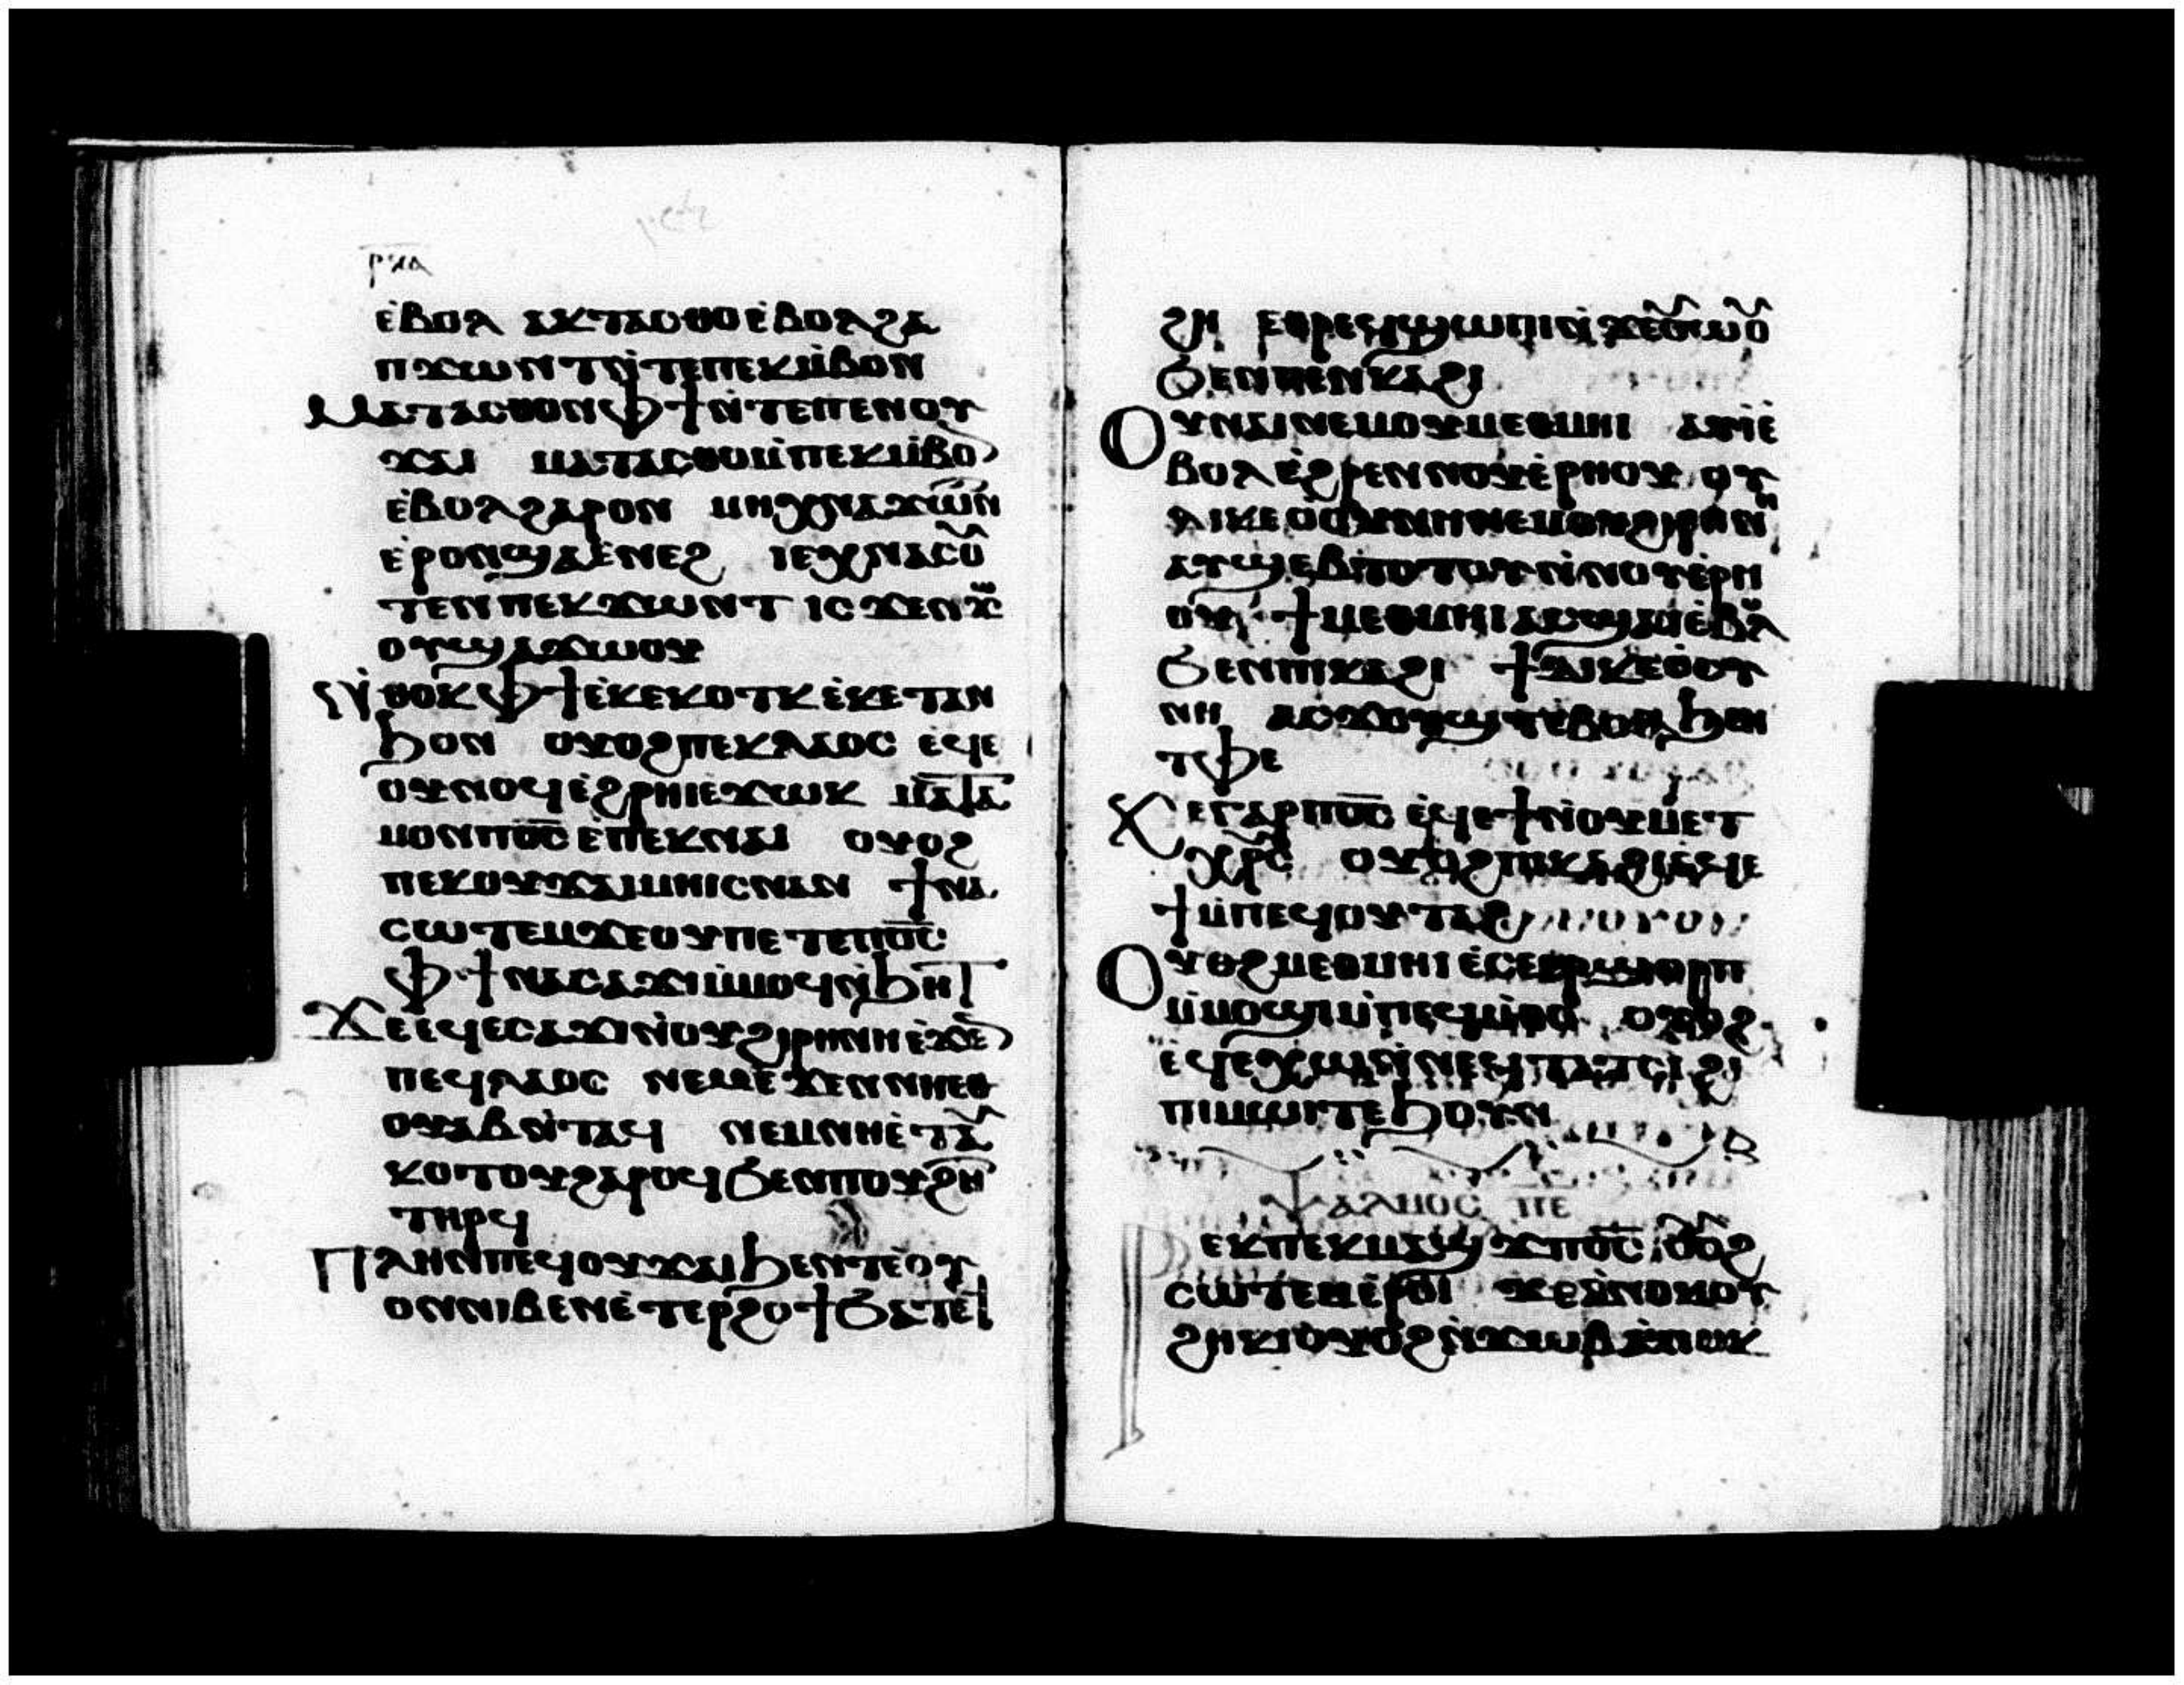 ⲣⲝⲁ
ⲉ̀ⲃⲟⲗ ⲁⲕⲧⲁⲥⲑⲟ ⲉ̀ⲃⲟⲗϩⲁ
ⲡϫⲱⲛⲧ ⲛ̀ⲧⲉⲡⲉⲕⲙ̀ⲃⲟⲛ
ⲙⲁⲧⲁⲥⲑⲟⲛ ⲫϯ ⲛ̀ⲧⲉⲡⲉⲛⲟⲩ
ϫⲁⲓ ⲙⲁⲧⲁⲥⲑⲟ ⲙ̀ⲡⲉⲕⲙ̀ⲃⲟ
ⲉ̀ⲃⲟⲗϩⲁⲣⲟⲛ ⲙⲏ ⲭⲛⲁϫⲱⲛ
ⲉ̀ⲣⲟⲛ ϣⲁ ⲉ̀ⲛⲉϩ ⲓⲉ ⲭⲛⲁⲥⲟ
ⲧⲉⲛ ⲡⲉⲕϫⲱⲛⲧ ⲓⲥϫⲉⲛ ϫ
ⲟⲩ ϣⲁ ϫⲱⲟⲩ
ⲛ̀ⲑⲟⲕ ⲫϯ ⲉ̀ⲕⲉⲕⲟⲧⲕ ⲉ̀ⲕⲉⲧⲁⲛ
ϧⲟⲛ ⲟⲩⲟϩ ⲡⲉⲕⲗⲁⲟⲥ ⲉϥⲉ
ⲟⲩⲛⲟϥ ⲉ̀ϩⲣⲏⲓ ⲉϫⲱⲕ ⲙⲁⲧⲁ
ⲙⲟⲛ ⲡⲟ̅ⲥ̅ ⲉ̀ⲡⲉⲕⲛⲁⲓ ⲟⲩⲟϩ
ⲡⲉⲕⲟⲩϫⲁⲓ ⲙⲏⲓⲥ ⲛⲁⲛ ϯⲛⲁ
ⲥⲱⲧⲉⲙ ϫⲉ ⲟⲩ ⲡⲉⲧⲉ ⲡⲟ̅ⲥ̅
ⲫϯ ⲛⲁⲥⲁϫⲓ ⲙ̀ⲙⲟϥ ⲛ̀ϧⲏⲧ
ϫⲉ ⲉϥⲉⲥⲁϫⲓ ⲛ̀ⲟⲩϩⲓⲣⲏⲛⲏ ⲉ̀ϫⲉ
ⲡⲉϥⲗⲁⲟⲥ ⲛⲉⲙ ⲉ̀ϫⲉⲛ ⲛⲏⲉⲑ
ⲟⲩⲁⲃ ⲛ̀ⲧⲁϥ ⲛⲉⲙ ⲛⲏ ⲉ̀ⲧⲁ
ⲕⲟⲧⲟⲩ ϩⲁⲣⲟϥ ϧⲉⲛ ⲡⲟⲩϩⲏ
ⲧⲏⲣϥ
ⲡⲗⲏⲛ ⲡⲉϥⲟⲩϫⲁⲓ ϧⲉⲛⲧ ⲉ̀ⲟⲩ
ⲟⲛ ⲛⲓⲃⲉⲛ ⲉ̀ⲧⲉⲣϩⲟϯ ϧⲁⲧⲉ
ϩⲏ ⲉⲑⲣⲉϥϣⲱⲡⲓ ⲛ̀ϫⲉ
ϧⲉⲛ ⲡⲉⲛⲕⲁϩⲓ
ⲟⲩⲛⲁⲓ ⲛⲉⲙ ⲟⲩⲙⲉⲑⲙⲏⲓ ⲁⲩⲓ ⲉ̀
ⲃⲟⲗ ⲉ̀ϩⲣⲉⲛ ⲛⲟⲩⲉ̀ⲣⲏⲟⲩ ⲟⲩ
ⲇⲓⲕⲉⲟⲥⲩⲛⲏ ⲛⲉⲙ ⲟⲩϩⲓⲣⲏⲛⲏ
ⲁⲩϣⲉⲃⲓ ⲧⲟⲧⲟⲩ ⲛ̀ⲛⲟⲩⲉ̀ⲣⲏ
ⲟⲩ ϯⲙⲉⲑⲙⲏⲓ ⲁⲥϣⲁⲓ ⲉ̀ⲃⲗ
ϧⲉⲛ ⲡⲓⲕⲁϩⲓ ϯⲇⲓⲕⲉⲟⲥⲩ
ⲛⲏ ⲁⲥϫⲟⲩϣⲧ ⲉ̀ⲃⲟⲗ ϧⲉⲛ
ⲧⲫⲉ
ϫⲉ ⲅⲁⲣ ⲡⲟ̅ⲥ̅ ⲉϥⲉϯ ⲛ̀ⲟⲩⲙⲉⲧ
ⲭⲣⲥ ⲟⲩⲟϩ ⲡⲓⲕⲁϩⲓ ⲉϥⲉ
ϯ ⲙ̀ⲡⲉϥⲟⲩⲧⲁϩ
ⲟⲩⲟϩ ⲙⲉⲑⲙⲏⲓ ⲉ̀ⲥⲉⲉⲣϣⲟⲣⲡ
ⲙ̀ⲙⲟϣⲓ ⲙ̀ⲡⲉϥⲙ̀ⲑⲟ ⲟⲩⲟϩ
ⲉϥⲉⲭⲱ ⲛ̀ⲛⲉϥⲧⲁⲧⲥⲓ ϩⲓ
ⲡⲓⲙⲱⲓⲧ ⲉ̀ϧⲟⲩⲛ
ⲯⲁⲗⲙⲟⲥ ⲡⲉ
ⲣⲉⲕ ⲡⲉⲕⲙⲁϣϫ ⲡⲟ̅ⲥ̅ ⲟⲟϩ
ⲥⲱⲧⲉⲙ ⲉ̀ⲣⲟⲓ ϫⲉ ⲁⲛⲟⲕ ⲟⲩ
ϩⲏⲕⲓ ⲟⲩⲟϩ ⲛ̀ϫⲱⲃ ⲁⲛⲟⲕ